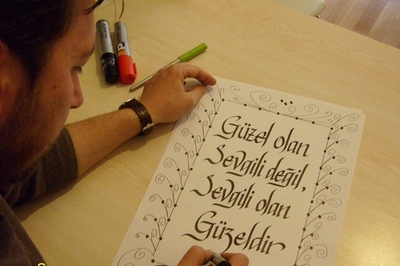 Güzel olan
Sevgili değil,
Sevgili olan
Güzeldir